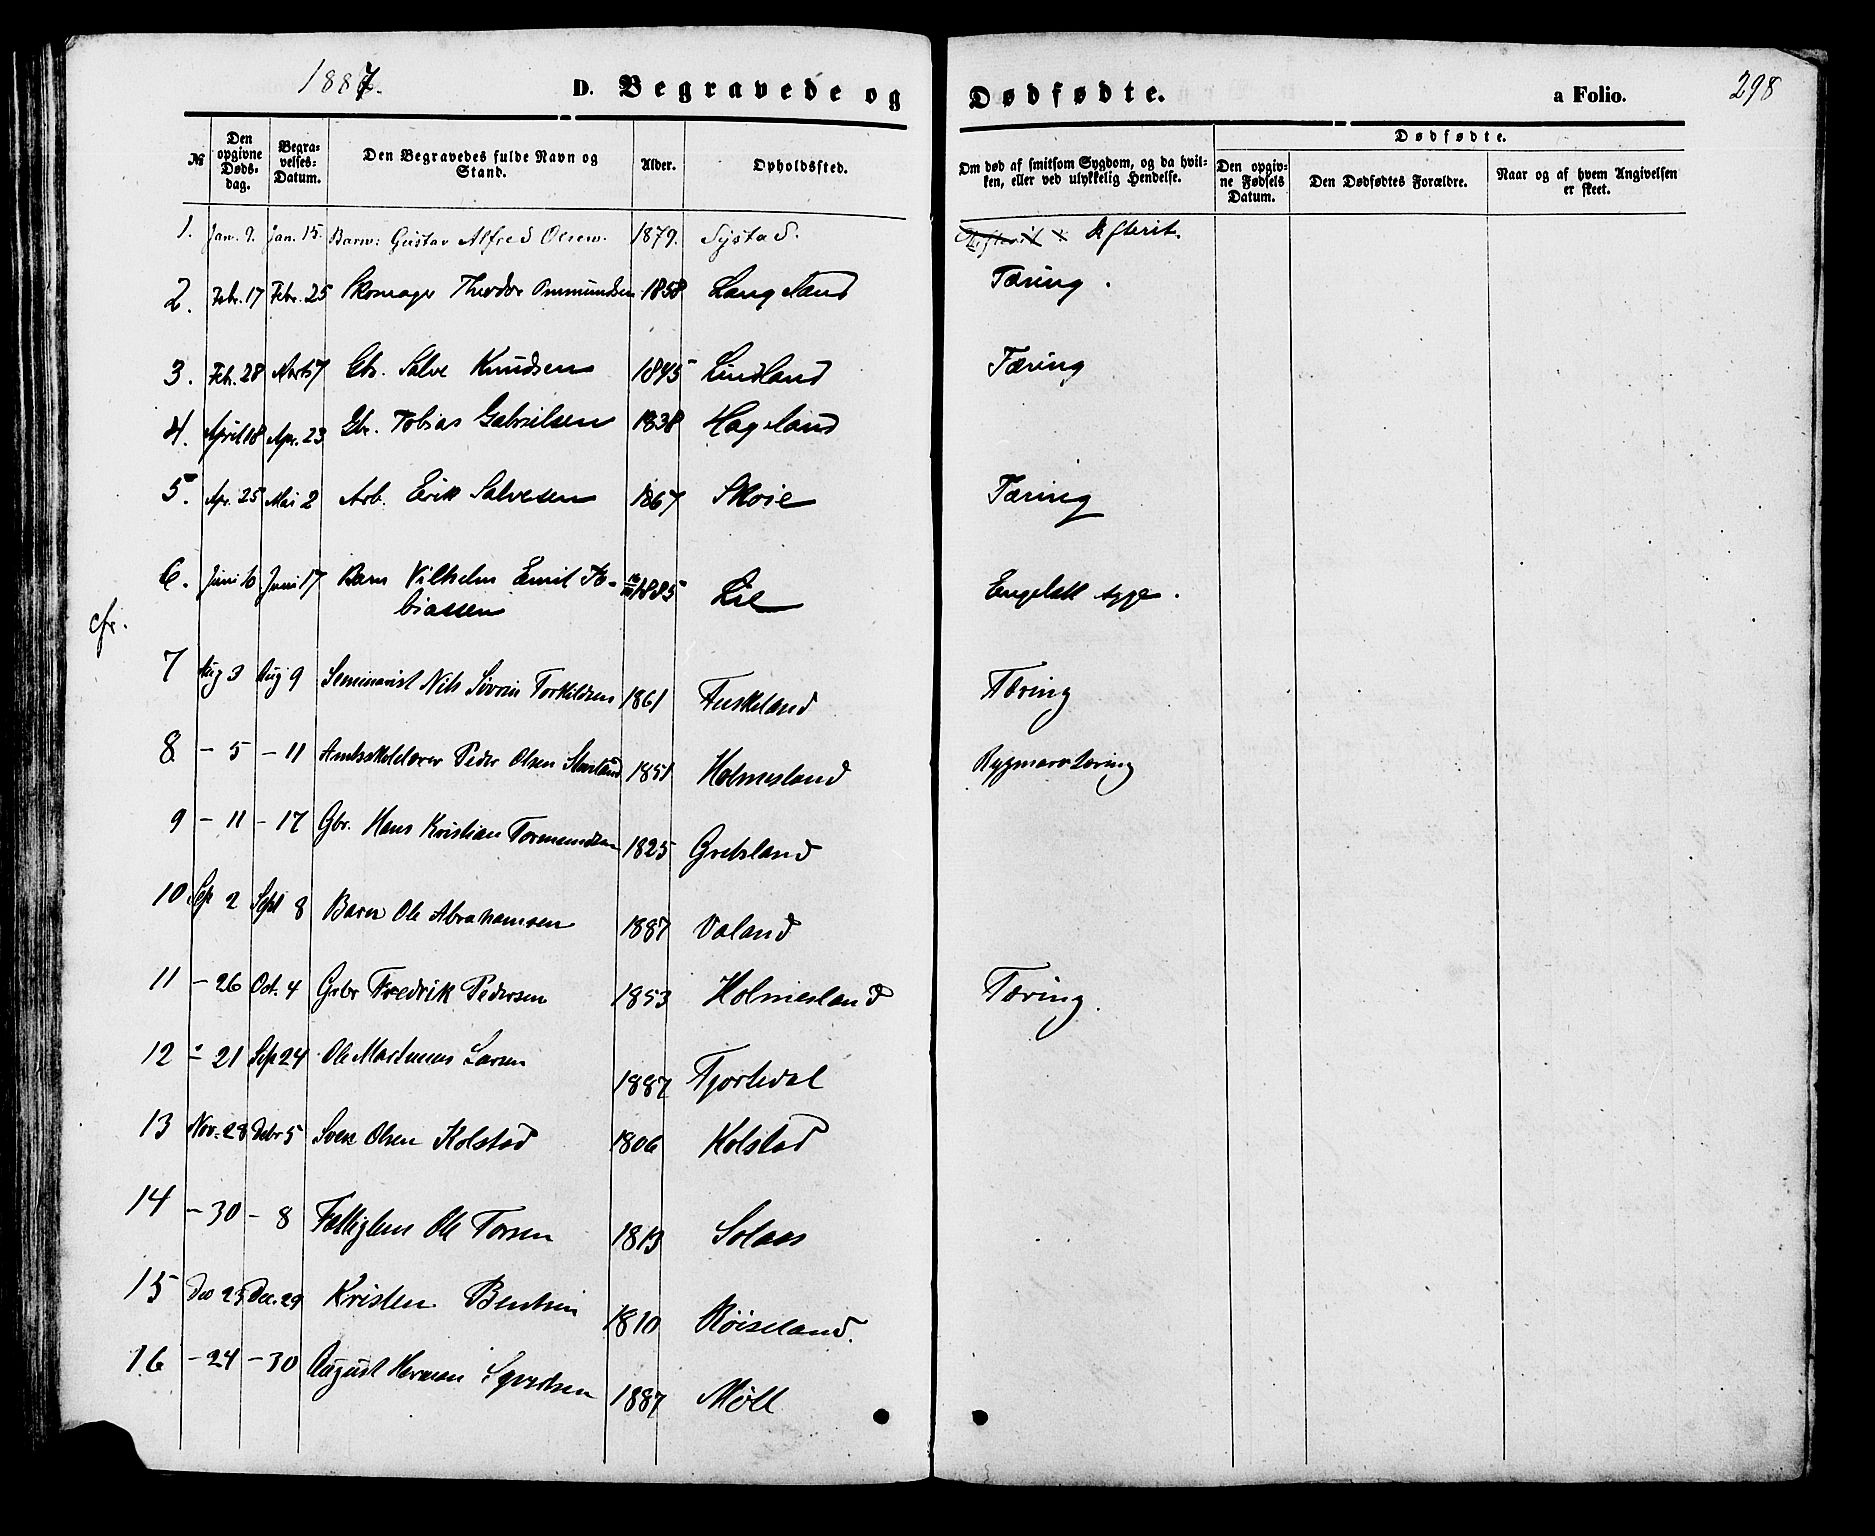 1887.
D. Begravede og Dødfødte.
a Folio.
298
№
Den opgivne Døds-dag.
Begra-velses-Datum.
Den Begravedes fulde Navn og Stand.
Alder.
Opholdssted.
Om død af smitsom Sygdom, og da hvil-ken, eller ved ulykkelig Hendelse.
Dødfødte.
Den opgiv-ne Fødsels Datum.
Den Dødfødtes Forældre.
Naar og af hvem Angivelsen er skeet.
1. Jan. 9. Jan. 15. Barn: Gustav Alfred Olsen. 1879. Systad. Difterit.
2. Febr. 17 Febr. 25 Skomager Theodor Ommundsen 1858 Langeland Tæring.
3. Feb. 28 Marts 7 Gbr. Salve Knudsen 1845 Lindland Tæring
4. April 18 Apr. 23 Gbr. Tobias Gabrielsen 1838 Hageland
5. Apr. 25 Mai 2 Arb. Erik Salvesen 1867 Skoie Tæring
6. Juni 10 Juni 17 Barn Vilhelm Emil To-
biassen 1885 Lil Engelsk syge.
cfr.
7 Aug 3 Aug 9 Seminarist Nils Søvrin Torkildsen 1861 Fuskeland Tæring
8 - 5 - 11 Amtsskolelærer Peder Olsen 1851 Holmesland Rygmarvtæring
9 - 11 - 17 Gbr. Hans Kristian Tormundsen 1825 Gretsland
10 Sep 2 Sept 8 Barn Ole Abrahamsen 1887 Valand
11 - 26 Oct. 4 Grbr Fredrik Pedersen 1853 Holmesland Tæring.
12 - 21 Sep 24 Ole Martinius Larsen 1887 Fjortedal
13 Nov. 28 Debr 5 Sven Olsen Kolstad 1806 Kolstad
14 - 30 - 8 Fattiglem Ole Torsen 1813 Solaas
15 Dec 23 Dec. 29 Kristen Bentsen 1810 Røiseland.
16 - 24 - 30 August Herman Syvertsen 1887 Møll